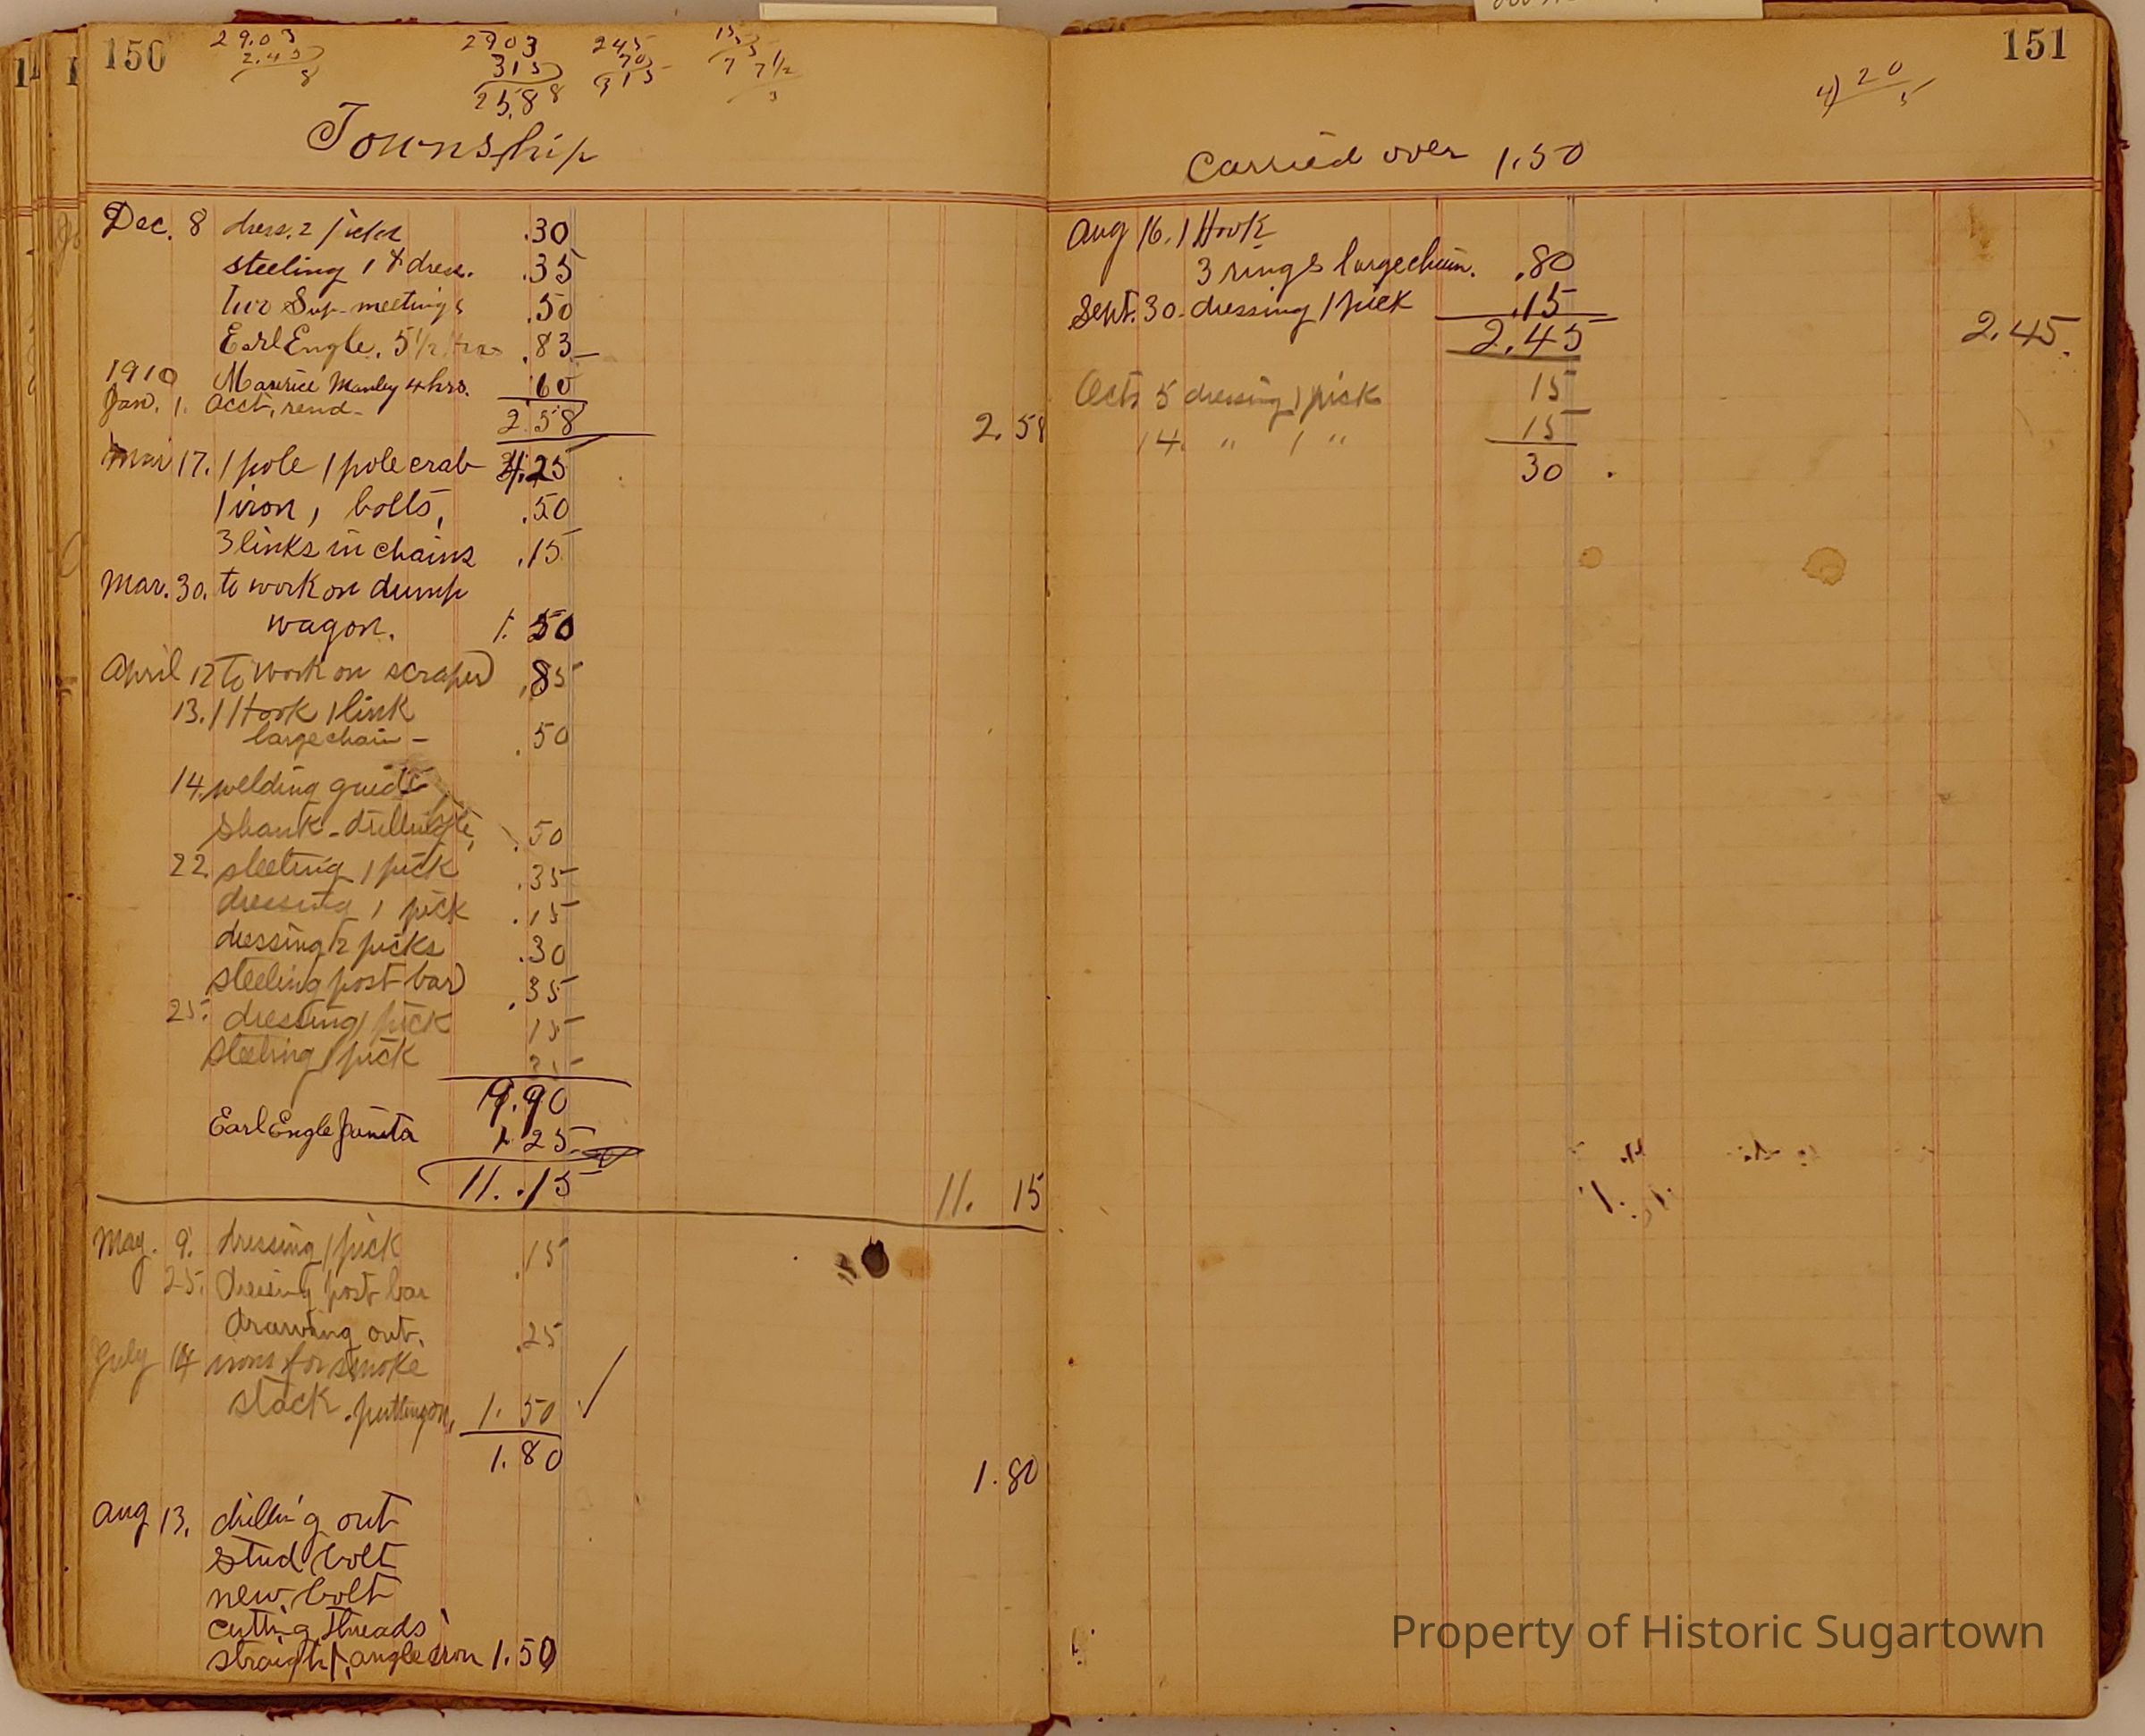 150
29.03
2.45
8
2903
315
25.88
245
70
315
15
5
7 7 1/2
Township
Dec. 8 dress. 2 picks .30
steeling 1 & dress. .35
two Sup. meetings .50
Earl Engle. 5 1/2 hrs .83
1910 Maurice Manley 4 hrs. 60
Jan. 1. acct, rend. 2.58
2.58
Mar 17. 1 pole 1 pole crab 4.25
1 iron, bolts, .50
3 links in chains .15
Mar. 30. to work on dump
wagon. 1.50
April 12 To work on scraper .85
13. 1 Hook 1 link
large chain - .50
14. welding guide
shank - drilling .50
22. steeling 1 pick .35
dressing 1 pick .15
dressing 2 picks .30
steeling post bar .35
25. dressing 1 pick 15
steeling 1 pick 35
9.90
Earl Engle 1.25
11.15
11. 15
May. 9. dressing 1 pick .15
25. dressing post bar
drawing out. .25
July 14 irons for smoke
stack. putting on, 1.50
1.80
1.80
Aug 13, drilling out
stud bolt
new bolt
cutting threads
straight, angle iron 1.50
151
4) 20
5
Carried over 1.50
Aug 16. 1 Hook
3 rings large chain. .80
Sept. 30. dressing 1 pick .15
2.45
2.45.
Oct. 5 dressing 1 pick 15
14. " 1 " 15
30
Property of Historic Sugartown